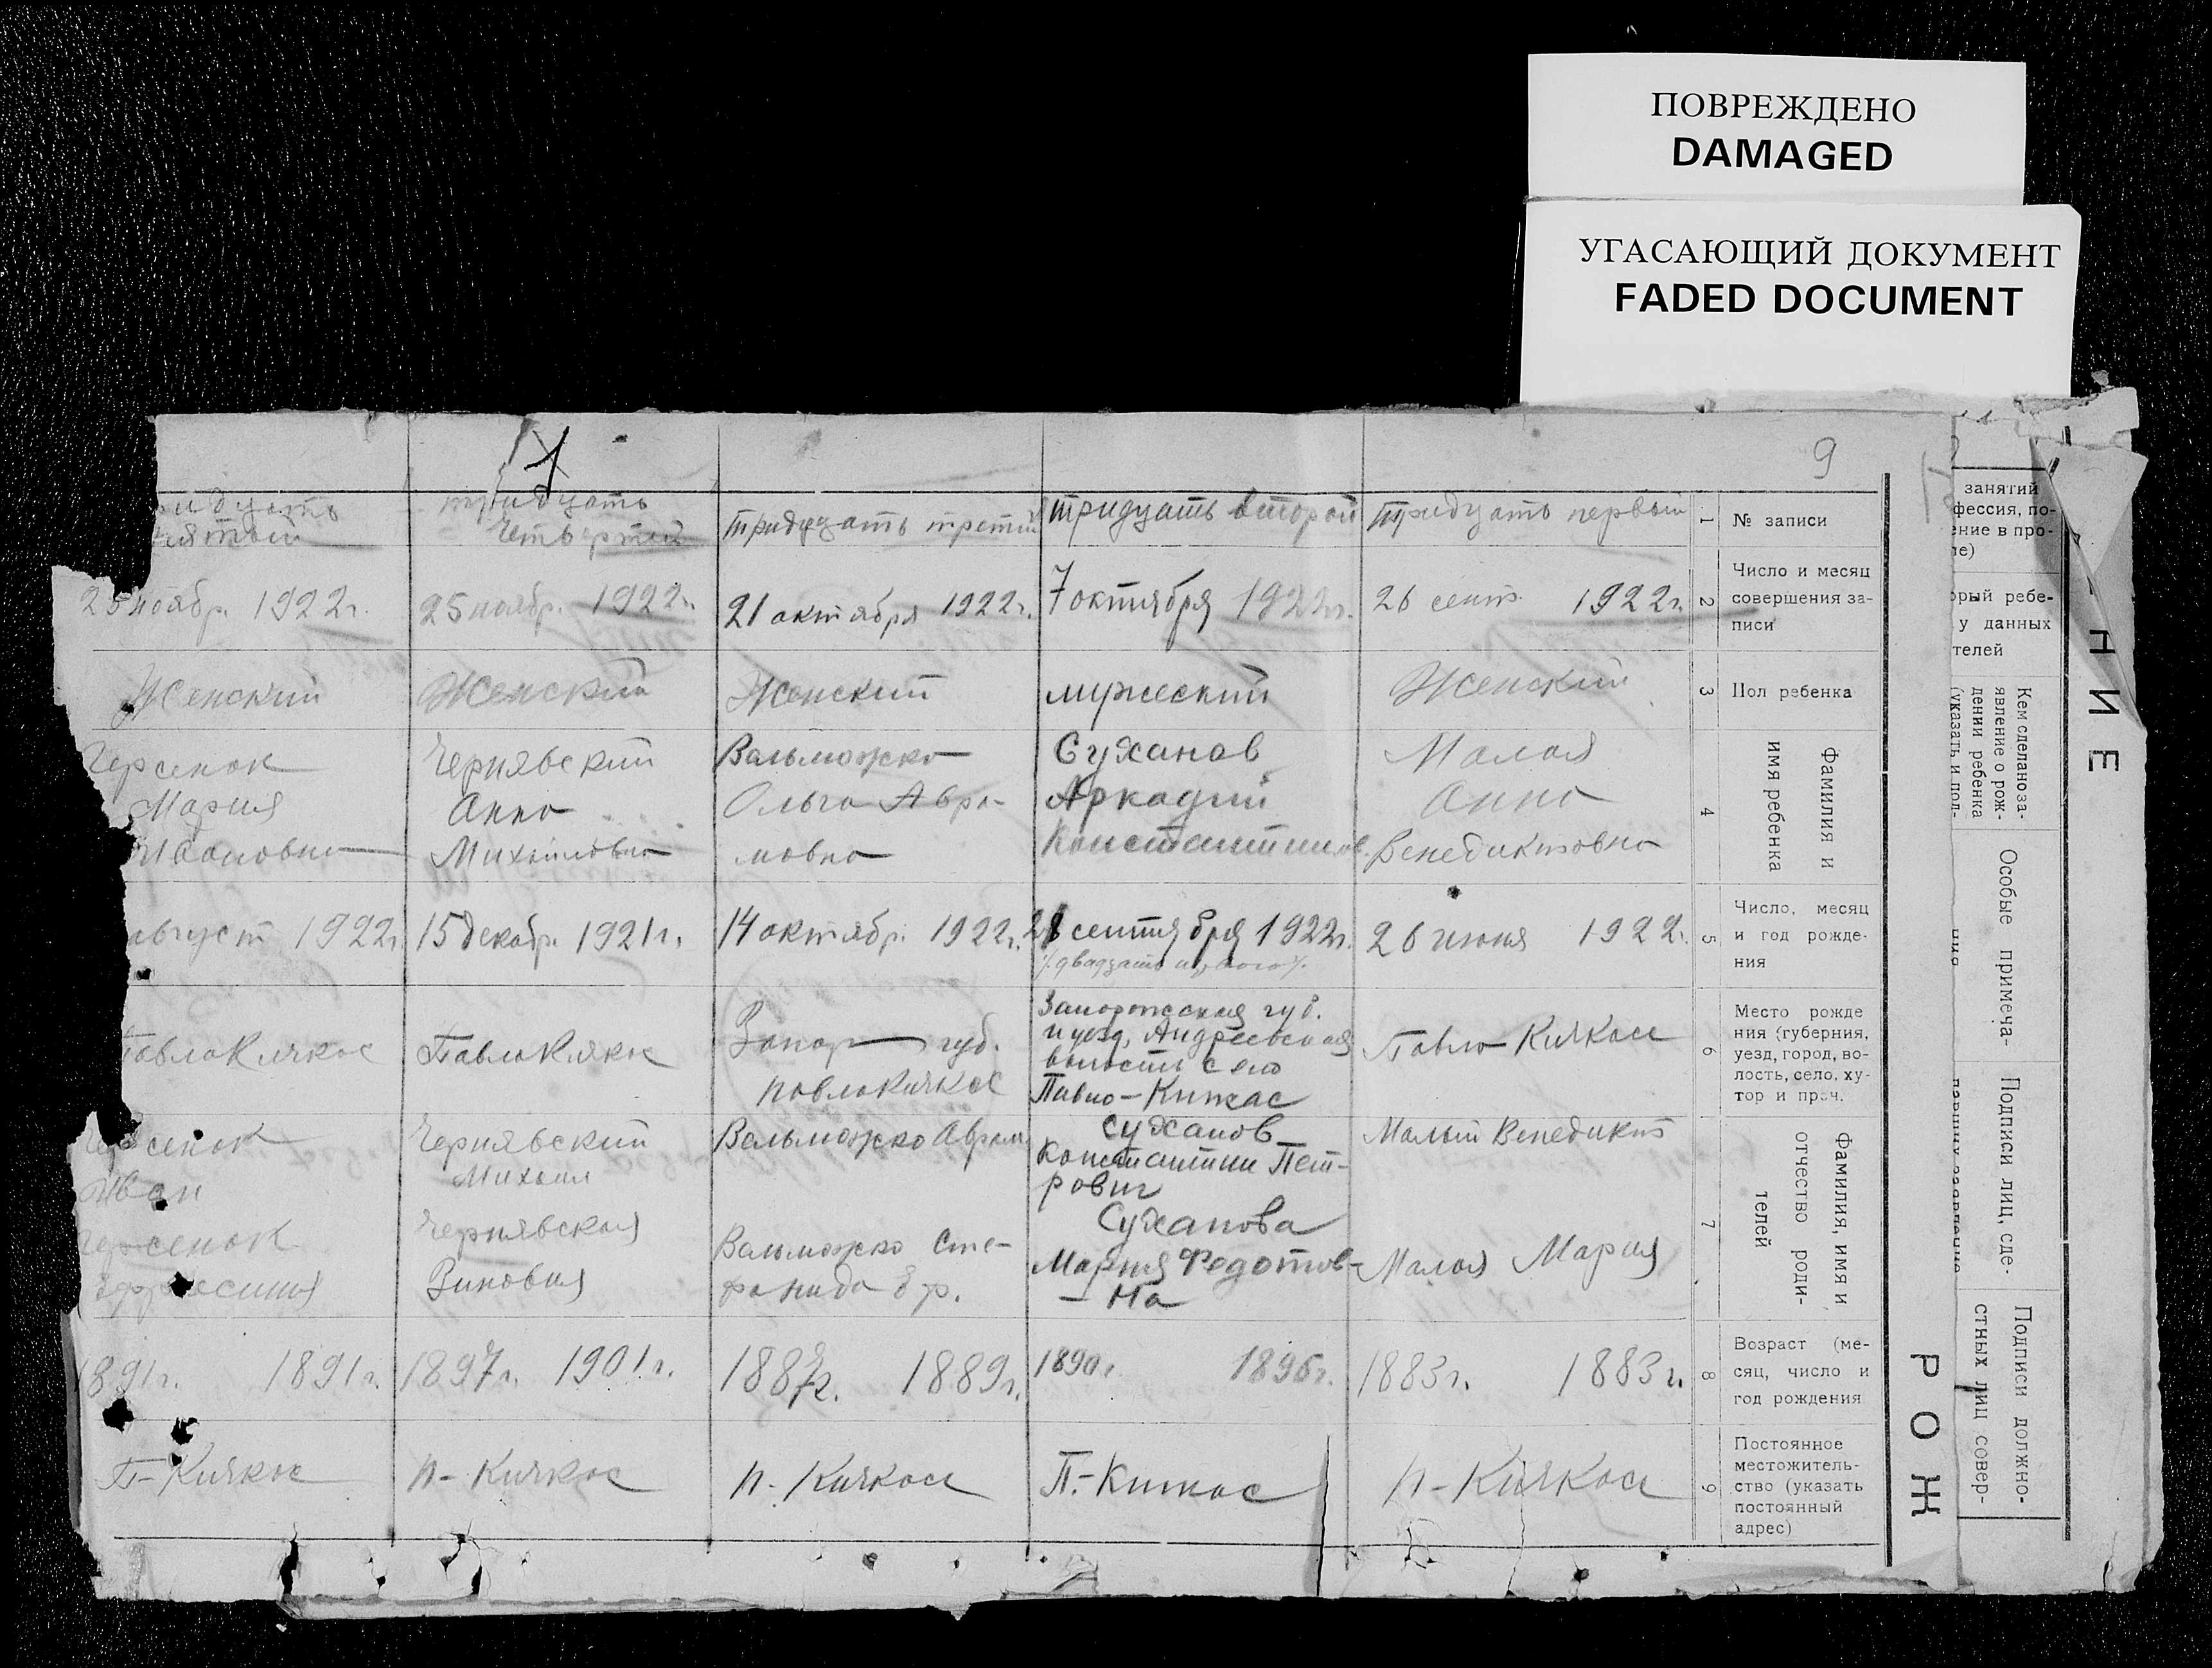 ПОВРЕЖДЕНО
DAMAGED
УГАСАЮЩИЙ ДОКУМЕНТ
FADED DOCUMENT
9
тридцать
четвертый
тридцать третий
тридцать второй
тридцать первый
1
№ записи
25 ноябр. 1922 г.
25 ноябр. 1922 г.
21 октября 1922 г.
7 октября 1922 г.
26 сент. 1922 г.
2
Число и месяц
совершения за-
писи
Женский
Женский
Женский
мужеский
Женский
3
Пол ребенка
Черсенок
Мария
Ивановна
Чернявский
Анна
Михайловна
Вальможко
Ольга Авра-
мовна
Суханов
Аркадий
Константинов.
Малая
Анна
Венедиктовна
4
Фамилия и
имя ребенка
август 1922 г.
15 декабр. 1921 г.
14 октябр. 1922 г.
21 сентября 1922 г.
26 июня 1922 г.
5
Число, месяц
и год рожде-
ния
ПавлоКичкас
ПавлоКичкас
Запор губ.
ПавлоКичкас
Запорожская губ.
и уезд, Андреевская
волость село
Павло-Кичкас
Павло-Кичкасс
6
Место рожде
ния (губерния,
уезд, город, во-
лость, село, ху-
тор и проч.
Черсенок
Иван
Черсенок
Ефросиния
Чернявский
Михаил
Чернявская
Зиновия
Вальможко Аврам
Вальможко Сте-
фанида Еф.
Суханов
Константин Пет-
рович
Суханова
Мария Федотов-
-на
Малый Венедикт
Малая Мария
7
Фамилия, имя и
отчество роди-
телей
1891 г. 1891 г.
1897 г. 1901 г.
1887 г. 1889 г.
1890 г. 1896 г.
1883 г. 1883 г.
8
Возраст (ме-
сяц, число и
год рождения
П-Кичкас
П-Кичкас
П-Кичкасс
П.-Кичкас
П-Кичкасс
9
Постоянное
местожитель-
ство (указать
постоянный
адрес)
РОЖ
занятий
фессия, по-
ение в про-
ле)
орый ребе-
у данных
телей
Кем сделано за-
явление о рож-
дении ребенка
(указать и под-
Особые примеча-
ния
Подписи лиц, сде-
Подписи должно-
стных лиц совер-
НИЕ